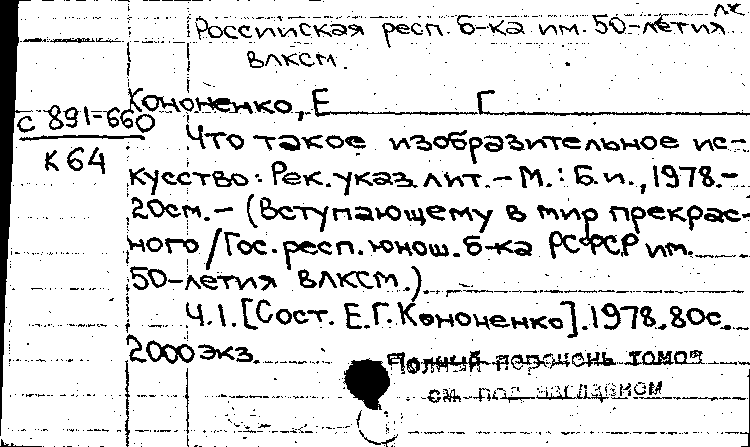 лк
Российская респ. б-ка им. 50-летия
ВЛКСМ.
Кононенко, Е Г
с 891-660
К 64
Что такое изобразительное ис-
кусство: Рек. указ. лит. – М.: Б.и., 1978.–
20см. – (Вступающему в мир прекрас-
ного / Гос. респ. юнош. б-ка РСФСР им.
50-летия ВЛКСМ.).
Ч.1. [Сост. Е.Г. Кононенко]. 1978. 80с.
2000 экз.
Полный перечень томов
см. под заглавием